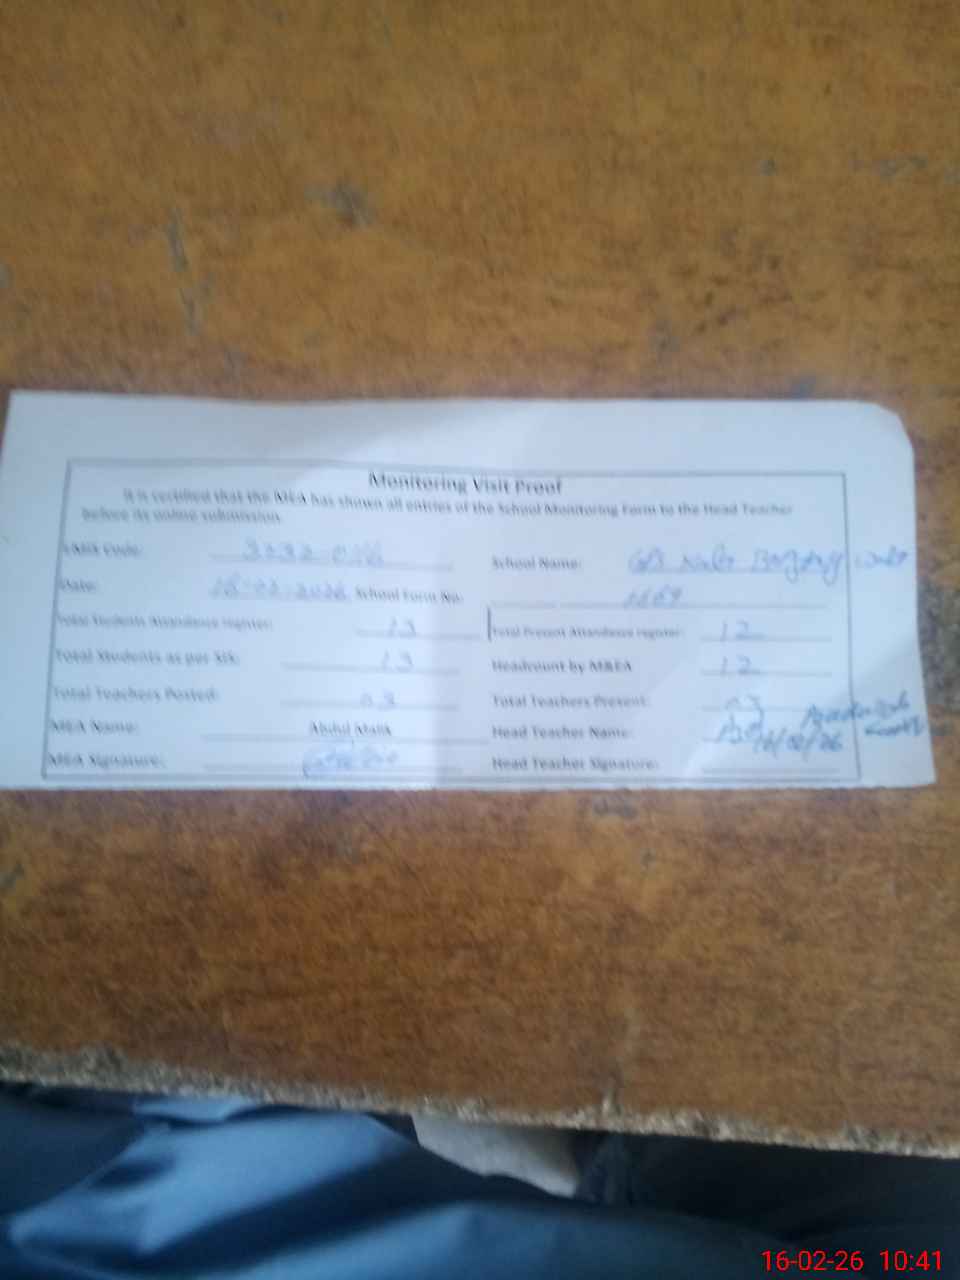 Monitoring Visit Proof
It is certified that the MEA has shown all entries of the School Monitoring Form to the Head Teacher
before its online submission.
EMIS Code: School Name: GPS
Date: 16-02-2026 School Form No.
Total Students Attendance register: 13 Total Present Attendance register: 12
Total Students as per SIS: 13 Headcount by M&EA 12
Total Teachers Posted: 03 Total Teachers Present: 03
MEA Name: Abdul Malik Head Teacher Name:
16/02/26
MEA Signature: Head Teacher Signature:
16-02-26 10:41